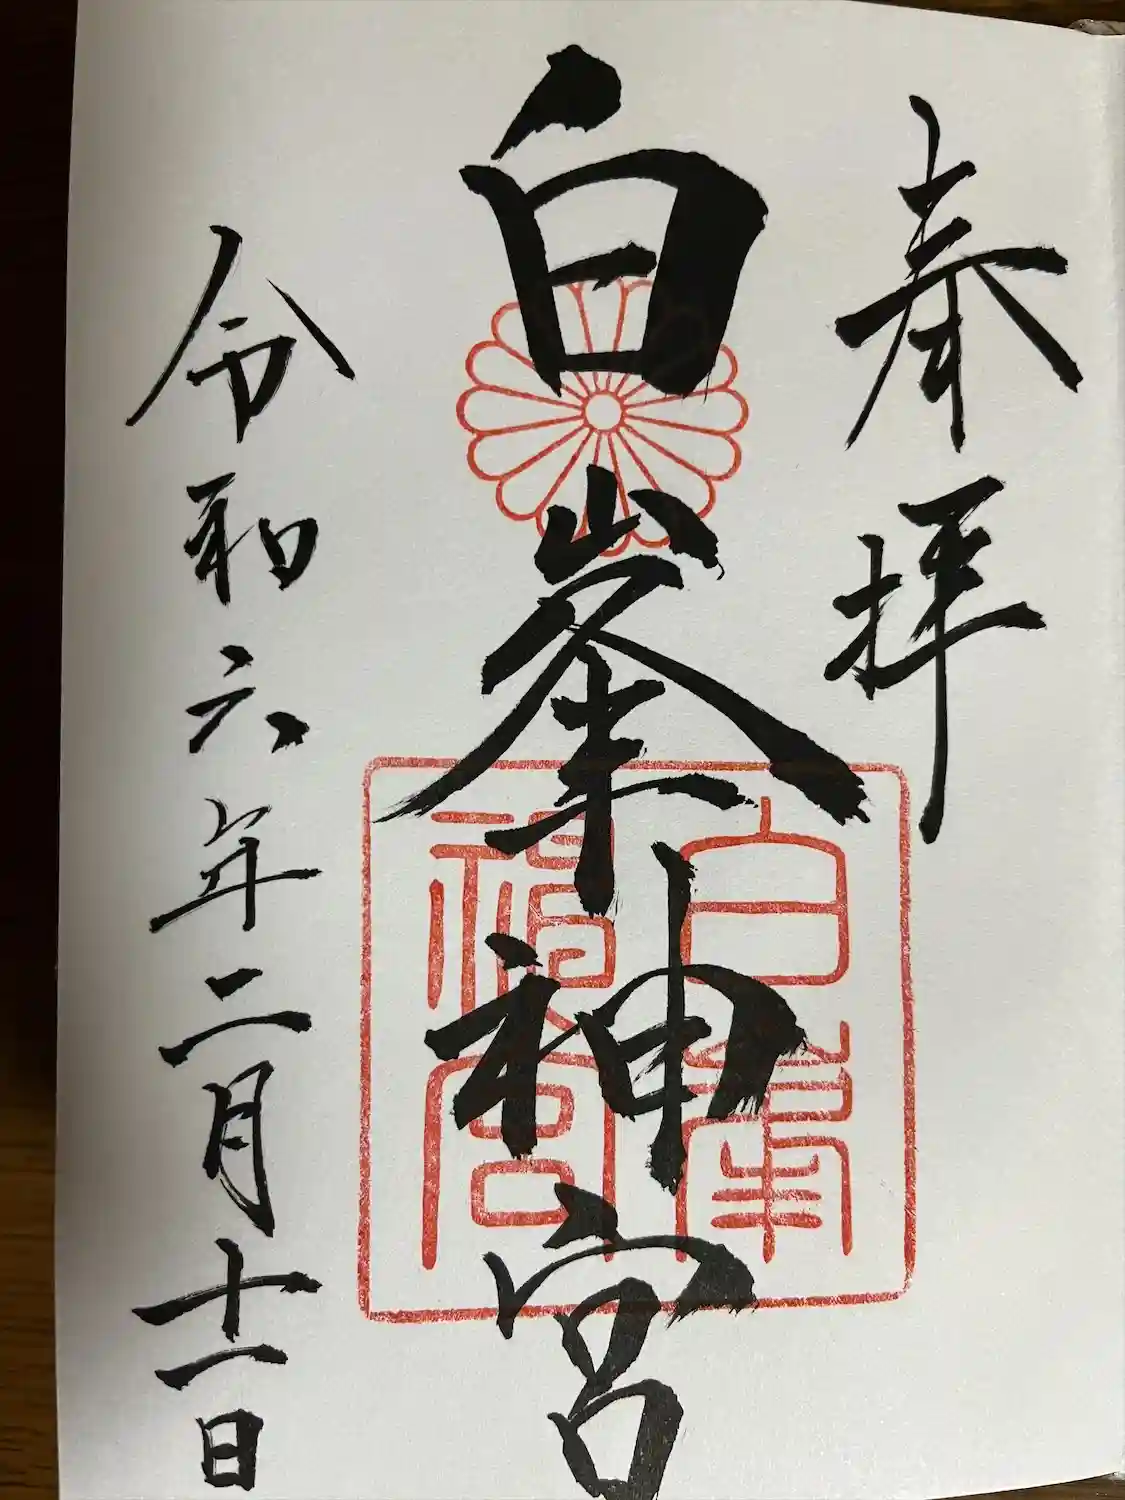 奉拝
白峯神宮
白峯神宮
令和六年二月十一日